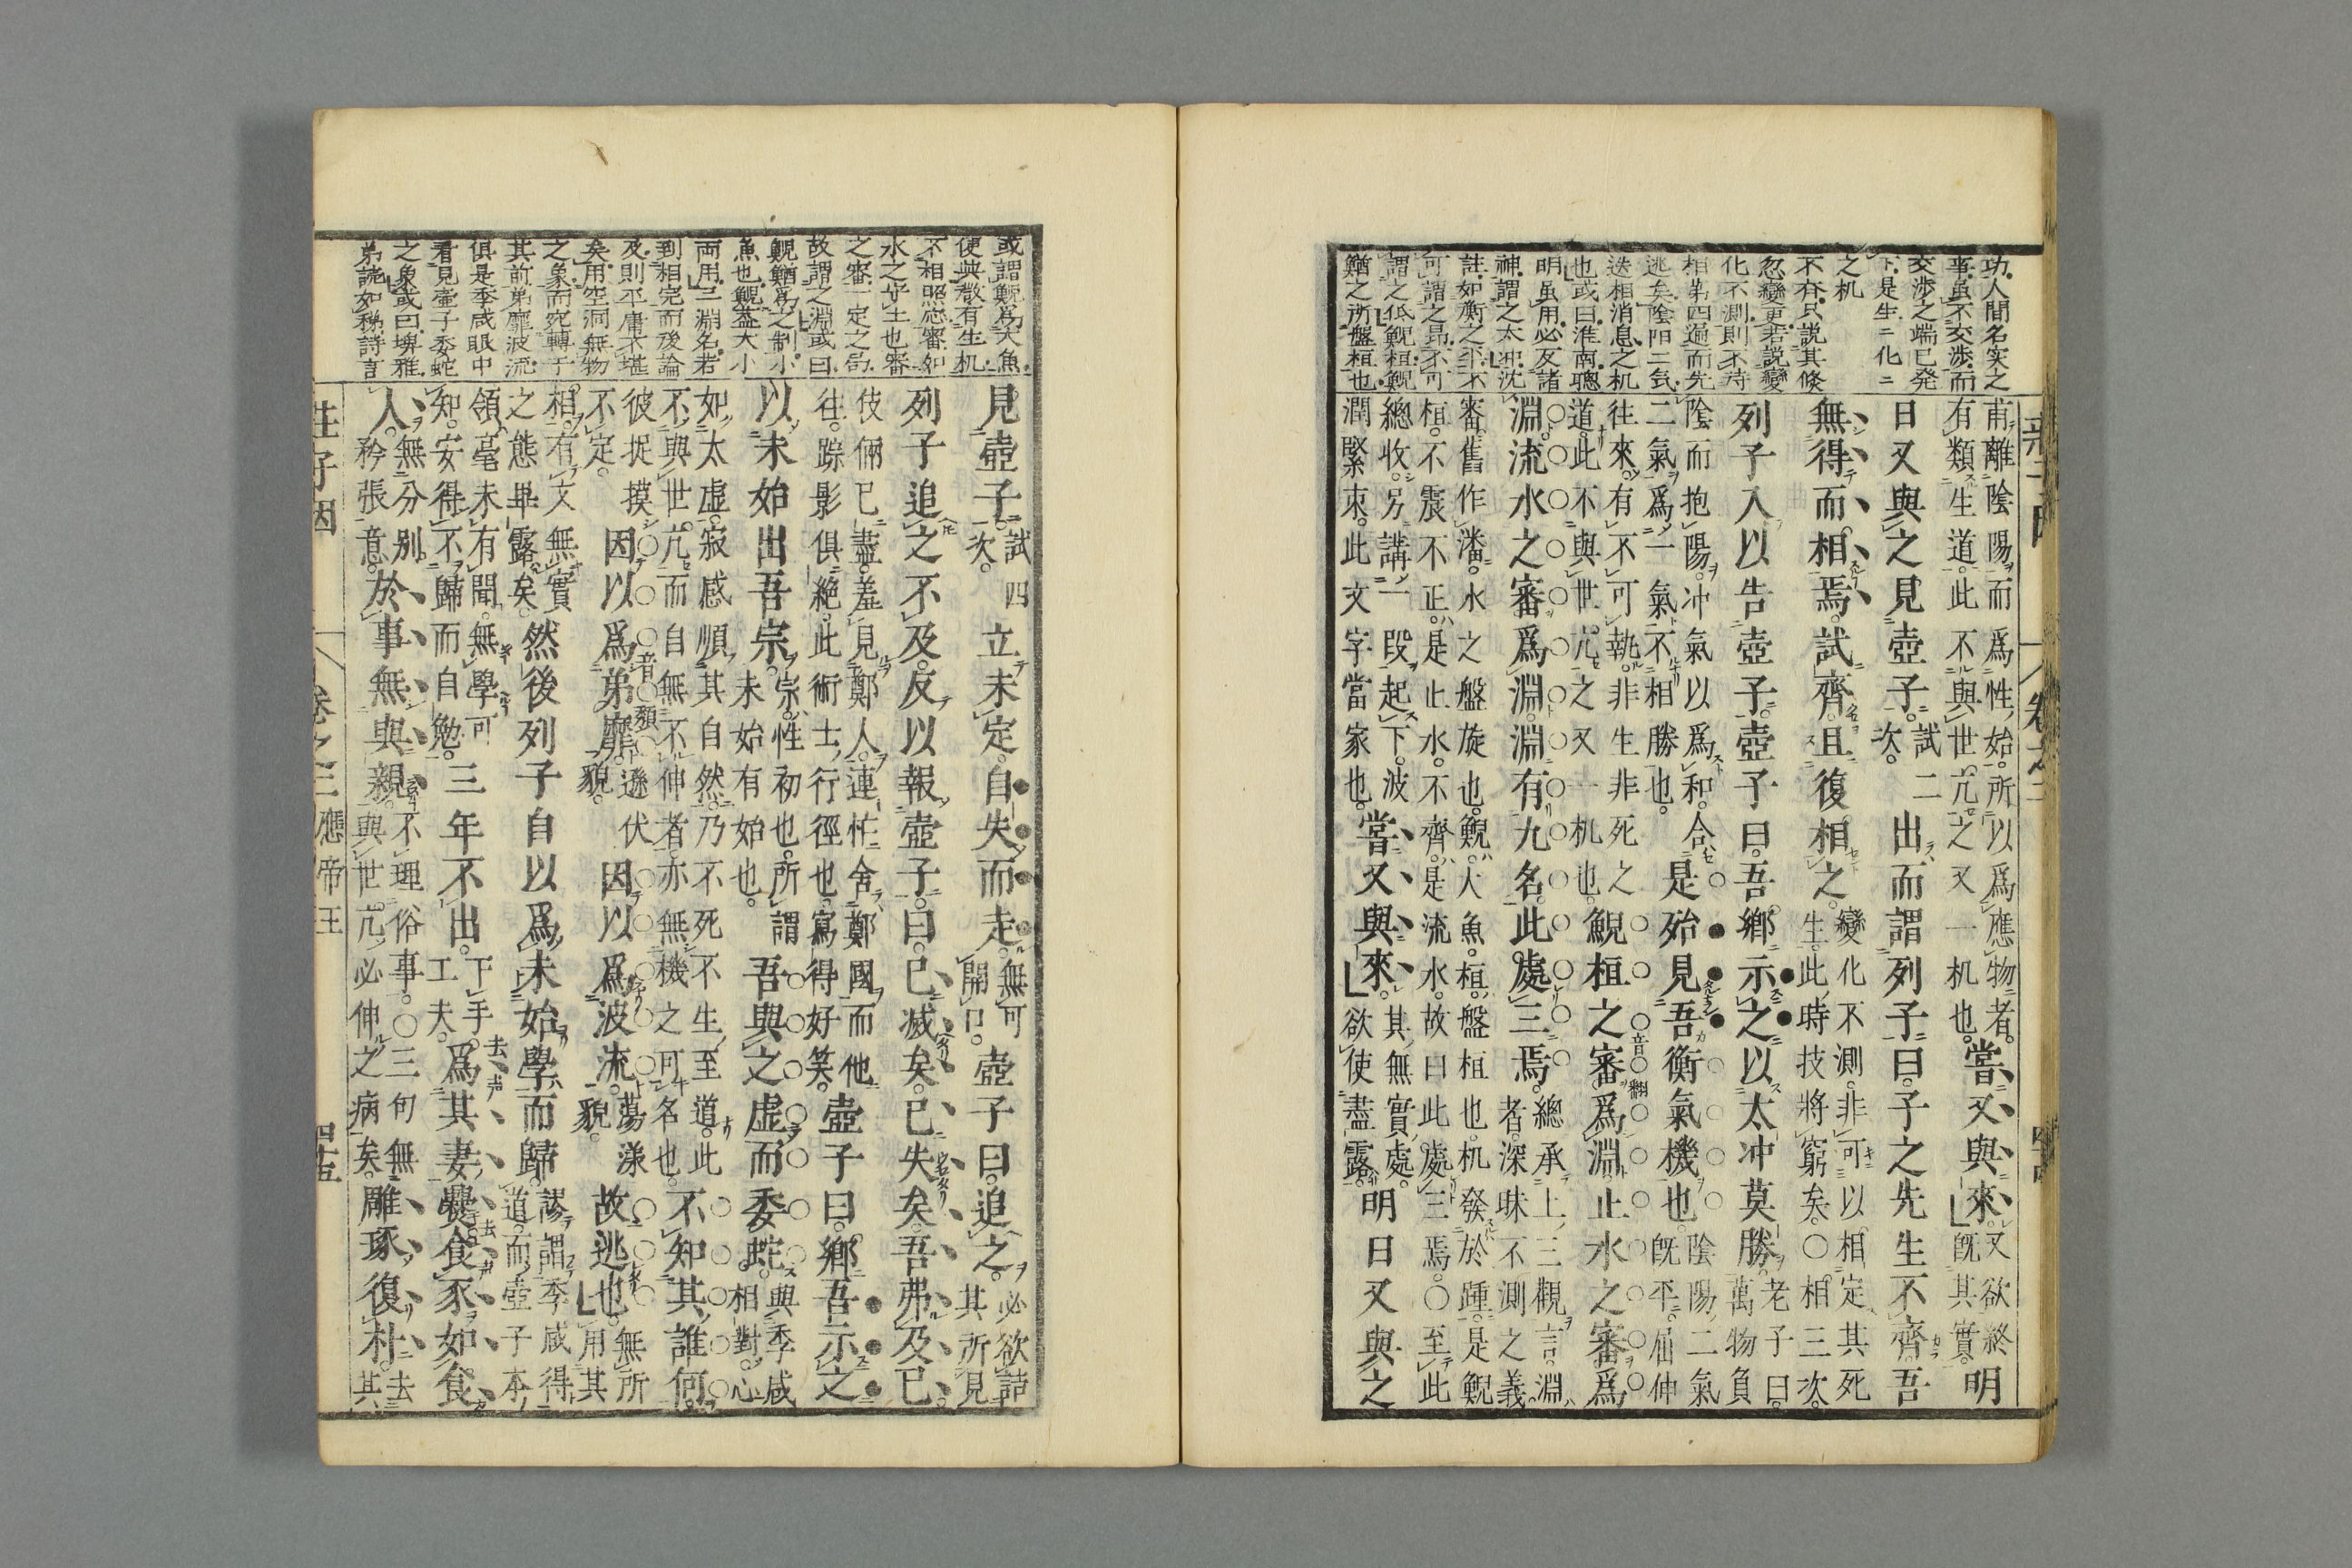 功人間名実之
事虽不交渉而
交渉之端已発
下是生ニ化ニ
之机
不夲只説其倏
忽變更若説變
化不測則不待
相第四過而先
逃矣陰阳二気
迭相消息之机
也或曰淮南聰
明虽用必反諸
神謂之太冲沈
註如衡之平不
可謂之昻不可
謂之低鯢桓鯢
鰌之所盤桓也
甫離陰陽而爲性始所以爲應物者
有類生道此不與世亢之又一机也
嘗又與來
又欲終
既其實
明
日又與之見壺子
試二
次
出而謂列子曰子之先生不齊吾
無得而相焉試齊且復相之
變化不測非可以相定其死
生此時技將窮矣○相三次
列子入以告壺子壺子曰吾鄉示之以太冲莫勝
老子曰
萬物負
陰而抱陽冲氣以爲和合
二氣爲一氣不相勝也
是殆見吾衡氣機也
陰陽二氣
既平屈伸
往來有不可執非生非死之
道此不與世亢之又一机也
鯢桓之審爲淵止水之審爲
淵流水之審爲淵淵有九名此處三焉
總承上三觀言淵
者深昧不測之義
審舊作潘水之盤旋也鯢大魚桓盤桓也机發於踵是鯢
桓不震不正是止水不齊是流水故曰此處三焉○至此
總收另講一段起下波
潤緊束此文字當家也
嘗又與來
其無實處
欲使盡露
明日又與之
莊子因
卷之三
應帝王
或謂鯢爲大魚
使典散有生机
不相照応審如
水之守土也審
之審一定之品
故謂之淵或曰
鯢鰌爲之制小
魚也鯢蓋大小
両用三淵名若
到相完而後論
及則平庸不堪
矣用空洞無物
之象而宛轉于
其前弟靡波流
俱是季咸眼中
看見壷子委蛇
之象或曰埤雅
弟読如稊詩言
見壺子
試四
次
立未定自失而走
無可
開口
壺子曰追之
必欲詰
其所見
列子追之不及反以報壺子曰已滅矣已失矣吾弗及已
伎倆已盡羞見鄭人連忙舍鄭國而他
往踪影俱絶此術士行徑也寫得好笑
壺子曰鄉吾示之
以未始出吾宗
宗性初也所謂
未始有始也
吾與之虚而委蛇
與季咸
相對心
如太虚寂感順其自然乃不死不生至道此
不與世亢而自無不伸者亦無機之可名也
不知其誰何
彼捉摸
不定
因以爲弟靡
遜伏
貌
因以爲波流
蕩漾
貌
故逃也
無所
用其
相有文無實
之態畢露矣
然後列子自以爲未始學而歸
謬謂季咸得
道而壺子本
領毫未有聞無學可
知安得不歸而自勉
三年不出
下手
工夫
爲其妻爨食豕如食
人
無分別
矜張意
於事無與親
不理俗事○三句無
與世亢必伸之病矣
雕琢復朴
去
其